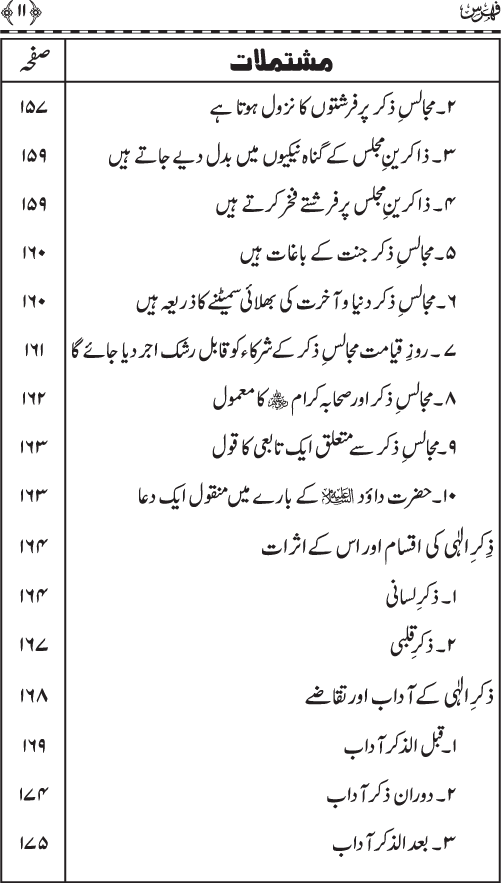 فہرس ﴿۱۱﴾
مشتملات صفحہ
۲۔ مجالسِ ذکر پر فرشتوں کا نزول ہوتا ہے ۱۵۷
۳۔ ذاکرینِ مجلس کے گناہ نیکیوں میں بدل دیے جاتے ہیں ۱۵۹
۴۔ ذاکرینِ مجلس پر فرشتے فخر کرتے ہیں ۱۵۹
۵۔ مجالسِ ذکر جنت کے باغات ہیں ۱۶۰
۶۔ مجالسِ ذکر دنیا و آخرت کی بھلائی سمیٹنے کا ذریعہ ہیں ۱۶۰
۷۔ روزِ قیامت مجالسِ ذکر کے شرکاء کو قابل رشک اجر دیا جائے گا ۱۶۱
۸۔ مجالسِ ذکر اور صحابہ کرام ﷢ کا معمول ۱۶۲
۹۔ مجالسِ ذکر سے متعلق ایک تابعی کا قول ۱۶۳
۱۰۔ حضرت داؤد علیہ السلام کے بارے میں منقول ایک دعا ۱۶۳
ذِکرِ الٰہی کی اقسام اور اس کے اثرات ۱۶۴
۱۔ ذکرِ لسانی ۱۶۴
۲۔ ذکرِ قلبی ۱۶۷
ذکرِ الٰہی کے آداب اور تقاضے ۱۶۸
۱۔ قبل الذکر آداب ۱۶۹
۲۔ دوران ذکر آداب ۱۷۴
۳۔ بعد الذکر آداب ۱۷۵